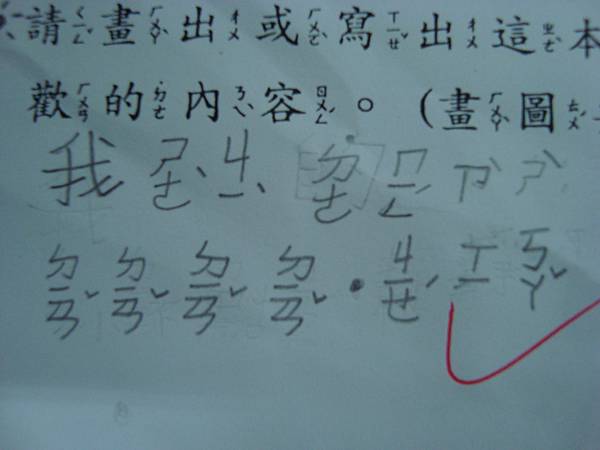 請ㄑㄧㄥˇ畫ㄏㄨㄚˋ出ㄔㄨ或ㄏㄨㄛˋ寫ㄒㄧㄝˇ出ㄔㄨ這ㄓㄜˋ本
歡ㄏㄨㄢ的˙ㄉㄜ內ㄋㄟˋ容ㄖㄨㄥˊ。(畫ㄏㄨㄚˋ圖ㄊㄨˊ
我ㄕㄜˋㄐㄧˋ˙ㄉㄜㄇㄧㄥˊㄗˋㄕˋ
ㄉㄧㄢˇㄉㄧㄢˇㄉㄧㄢˇㄉㄧㄢˇ·ㄐㄝˊㄒㄧㄎㄚˇ